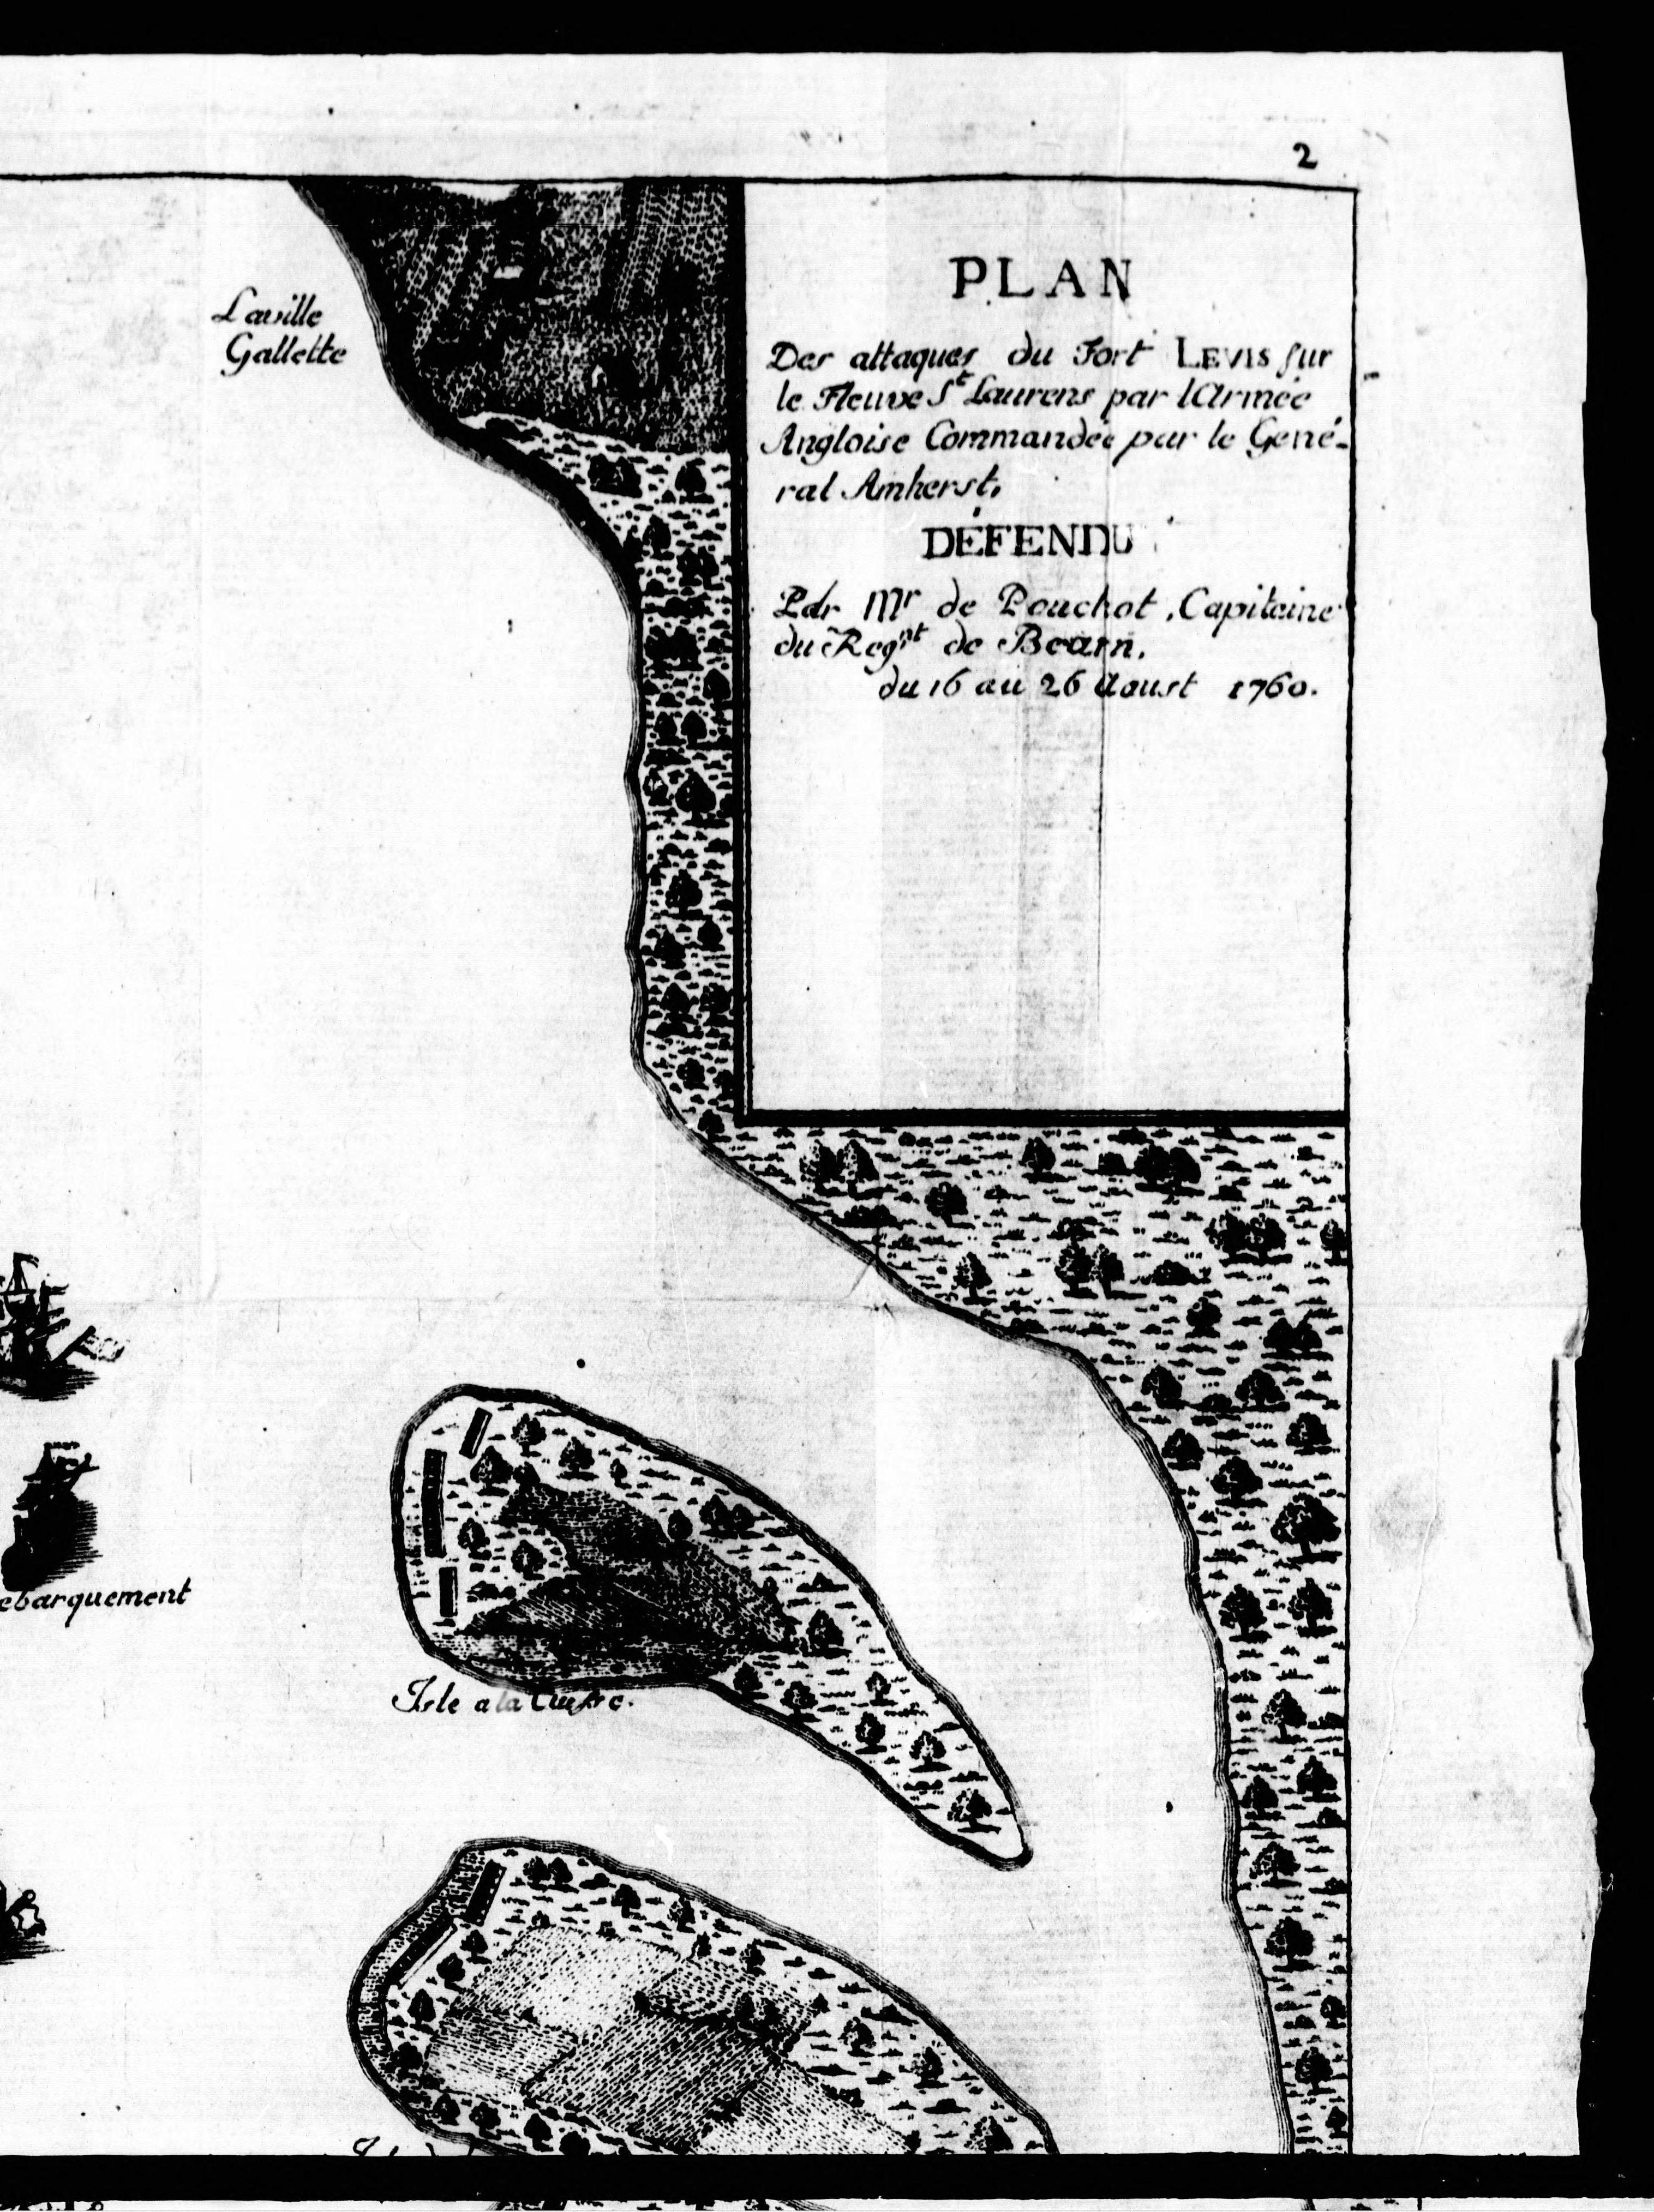 2
PLAN
Des attaques du Fort LEVIS sur
le Fleuve St Laurens par l'Armée
Angloise Commandée par le Gené-
ral Amherst,
DÉFENDU
Par Mr de Pouchot, Capitaine
du Regnt de Bearn.
du 16 au 26 Aoust 1760.
Laville
Gallette
ebarquement
Isle a la